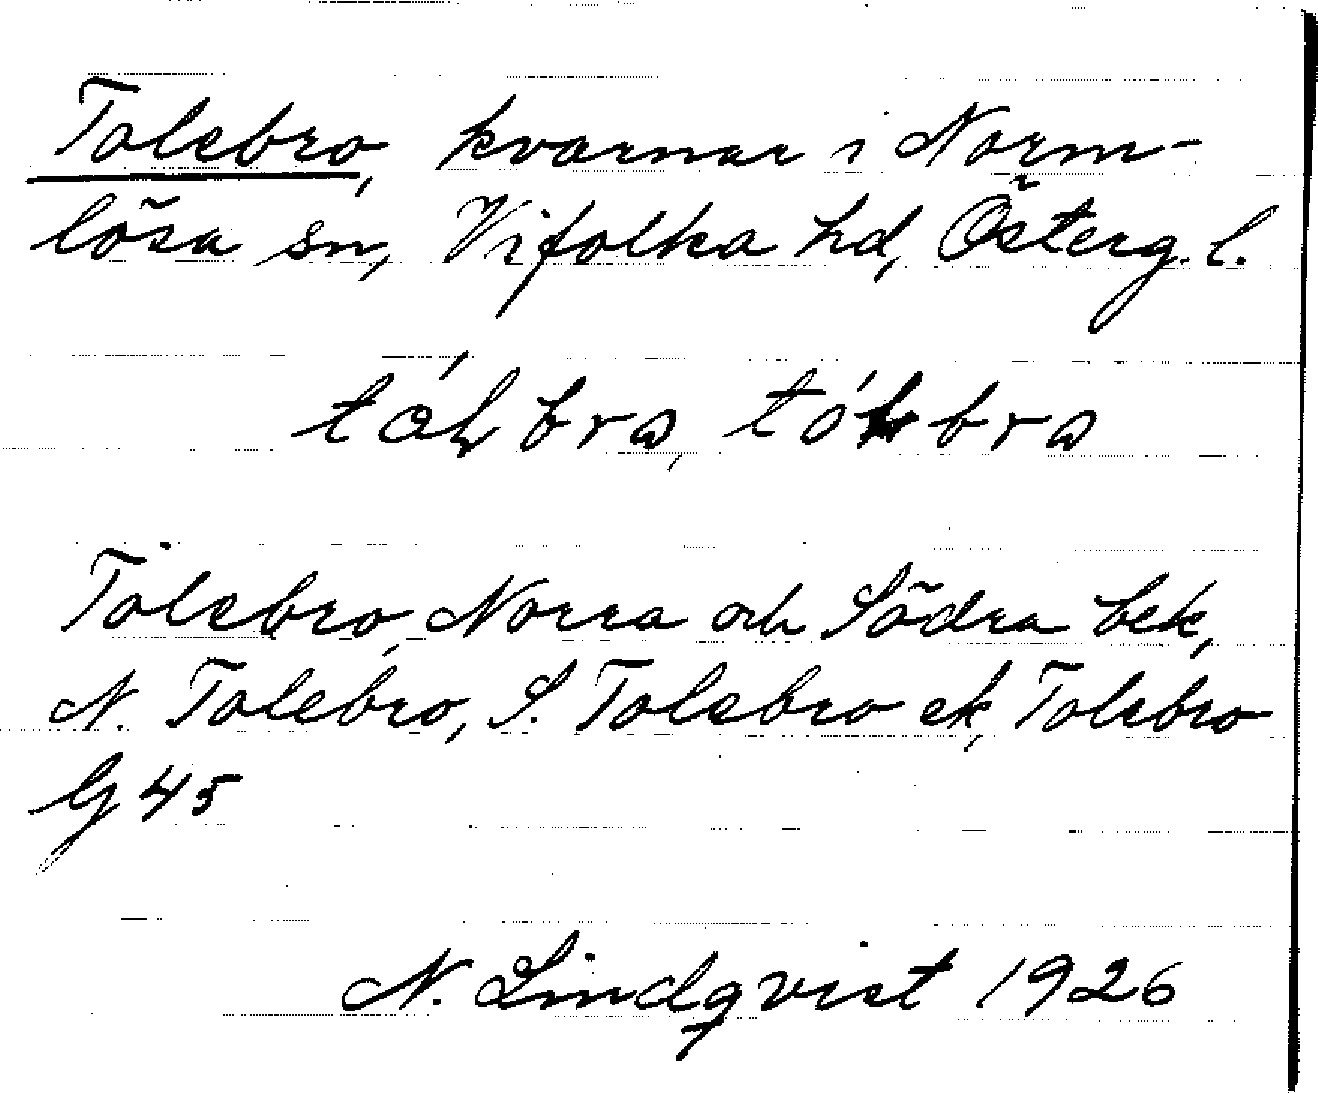 Tolebro, kvarnar i Norm-
lösa sn, Vifolka hd, Österg. l.
Tolebro, Norra och Södra bek,
N. Tolebro, S. Tolebro ek, Tolebro
G 45
N. Lindqvist 1926